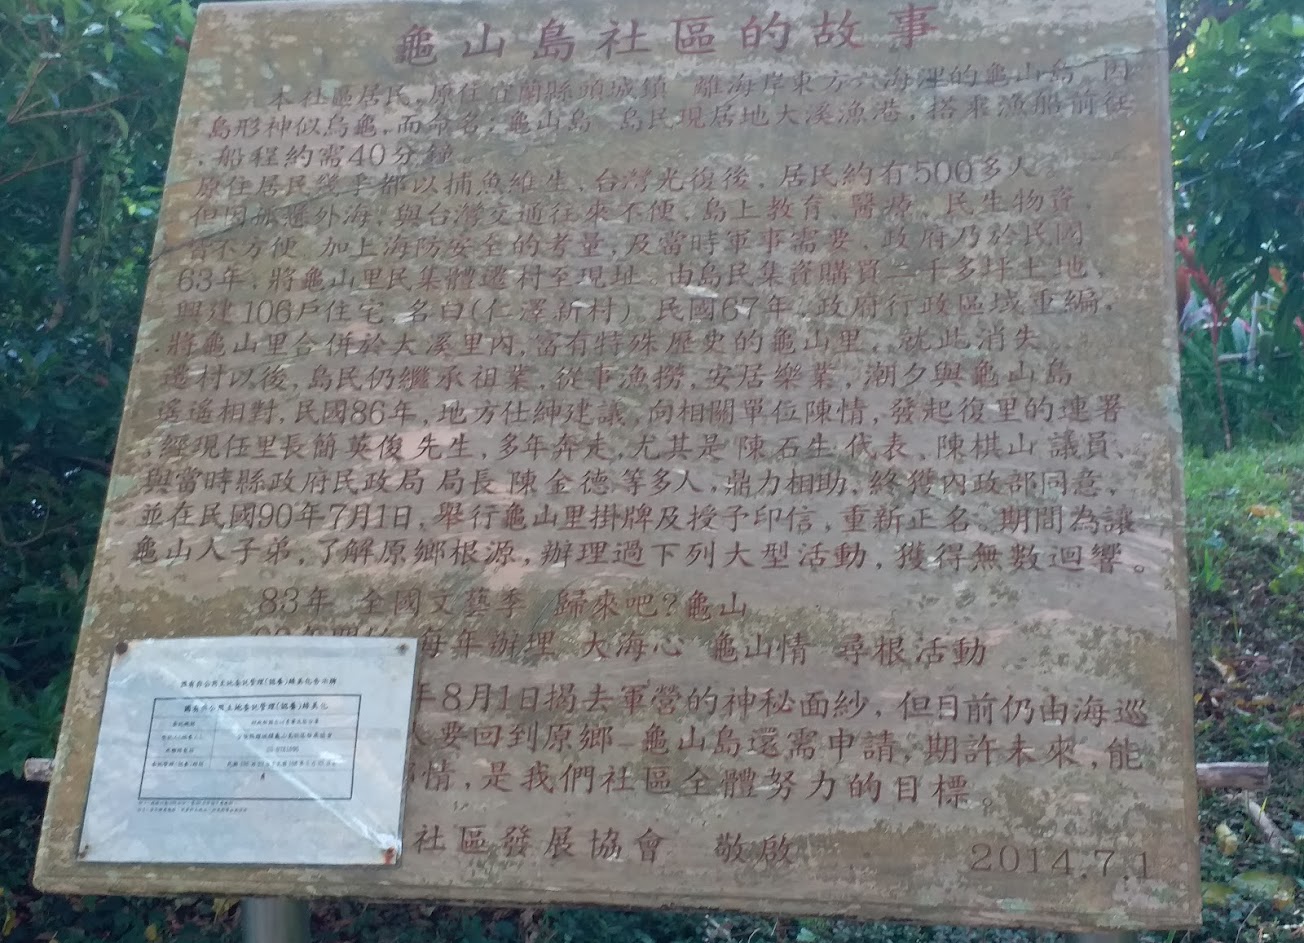 龜山島社區的故事
本社區居民,原住宜蘭縣頭城鎮 離海岸東方六海浬的龜山島 因
島形神似烏龜,而命名;龜山島 島民現居地大溪漁港,搭乘漁船前往
,船程約需40分鐘。
原住居民幾乎都以捕魚維生、台灣光復後,居民約有500多人。
但因孤懸外海,與台灣交通往來不便、島上教育、醫療、民生物資,
皆不方便 加上海防安全的考量,及當時軍事需要、政府乃於民國
63年,將龜山里民集體遷村至現址。由島民集資購買二千多坪土地、
興建106戶住宅 名曰(仁澤新村) 民國67年,政府行政區域重編,
將龜山里合併於大溪里內,富有特殊歷史的龜山里,就此消失
遷村以後,島民仍繼承祖業,從事漁撈,安居樂業,潮夕與龜山島
遙遙相對,民國86年,地方仕紳建議,向相關單位陳情,發起復里的連署
,經現任里長簡英俊先生,多年奔走,尤其是陳石生代表、陳棋山議員、
與當時縣政府民政局局長陳金德等多人,鼎力相助、終獲內政部同意,
並在民國90年7月1日,舉行龜山里掛牌及授予印信,重新正名、期間為讓
龜山人子弟,了解原鄉根源,辦理過下列大型活動,獲得無數迴響。
83年 全國文藝季 歸來吧?龜山
每年辦理 大海心 龜山情 尋根活動
年8月1日揭去軍營的神秘面紗,但目前仍由海巡
人要回到原鄉—龜山島還需申請,期許未來,能
情,是我們社區全體努力的目標。
社區發展協會 敬啟
2014.7.1
國有非公用土地委託管理(認養)綠美化告示牌
國有非公用土地委託管理(認養)綠美化